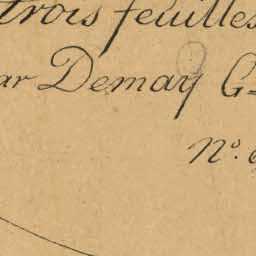 trois feuilles
ar Demay G
N°. 6